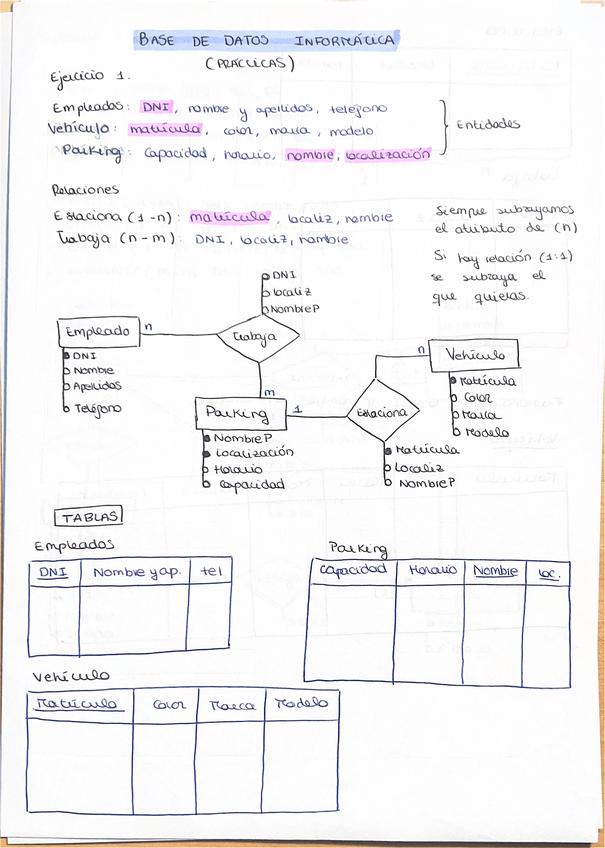 BASE DE DATOS INFORMÁTICA
(PRÁCTICAS)
Ejercicio 1.
Empleados: DNI, nombre y apellidos, teléfono
Vehículo: matrícula, color, marca, modelo
Parking: Capacidad, horario, nombre, localización
Entidades
Relaciones
Estaciona (1-n): matrícula, localiz, nombre
Trabaja (n-m): DNI, localiz, nombre
Siempre subrayamos
el atributo de (n)
Si hay relación (1:1)
se subraya el
que quieras.
DNI
localiz
NombreP
Empleado
n
Trabaja
DNI
Nombre
Apellidos
Teléfono
m
Parking
1
Estaciona
n
Vehículo
Matrícula
Color
Marca
Modelo
NombreP
Localización
Horario
Capacidad
Matrícula
Localiz
NombreP
TABLAS
Empleados
DNI Nombre y ap. tel
Parking
Capacidad Horario Nombre loc.
Vehículo
Matrícula Color Marca Modelo